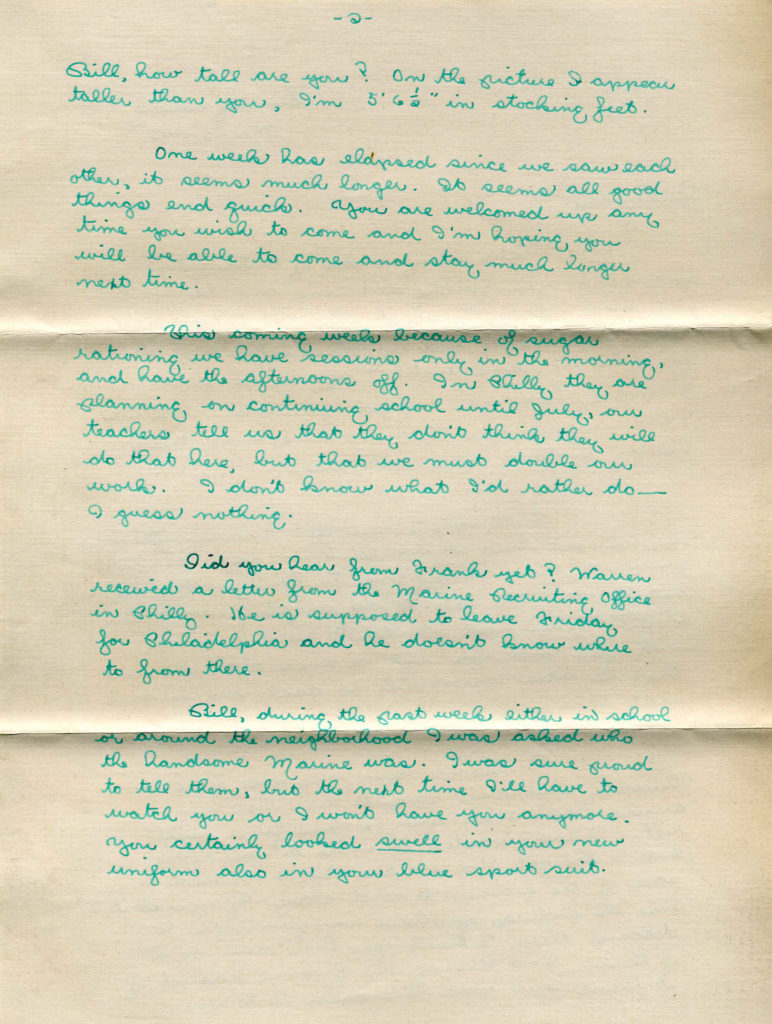 -2-
Bill, how tall are you? On the picture I appear
taller than you, I'm 5' 6 1/2" in stocking feet.
One week has elapsed since we saw each
other, it seems much longer. It seems all good
things end quick. You are welcomed up any
time you wish to come and I'm hoping you
will be able to come and stay much longer
next time.
This coming week because of sugar
rationing we have sessions only in the morning,
and have the afternoons off. In Philly they are
planning on continuing school until July, our
teachers tell us that they don't think they will
do that here, but that we must double our
work. I don't know what I'd rather do—
I guess nothing.
Did you hear from Frank yet? Warren
received a letter from the Marine Recruiting Office
in Philly. He is supposed to leave Friday
for Philadelphia and he doesn't know where
to from there.
Bill, during the past week either in school
or around the neighborhood I was asked who
the handsome Marine was. I was sure proud
to tell them, but the next time I'll have to
watch you or I won't have you anymore.
You certainly looked swell in your new
uniform also in your blue sport suit.